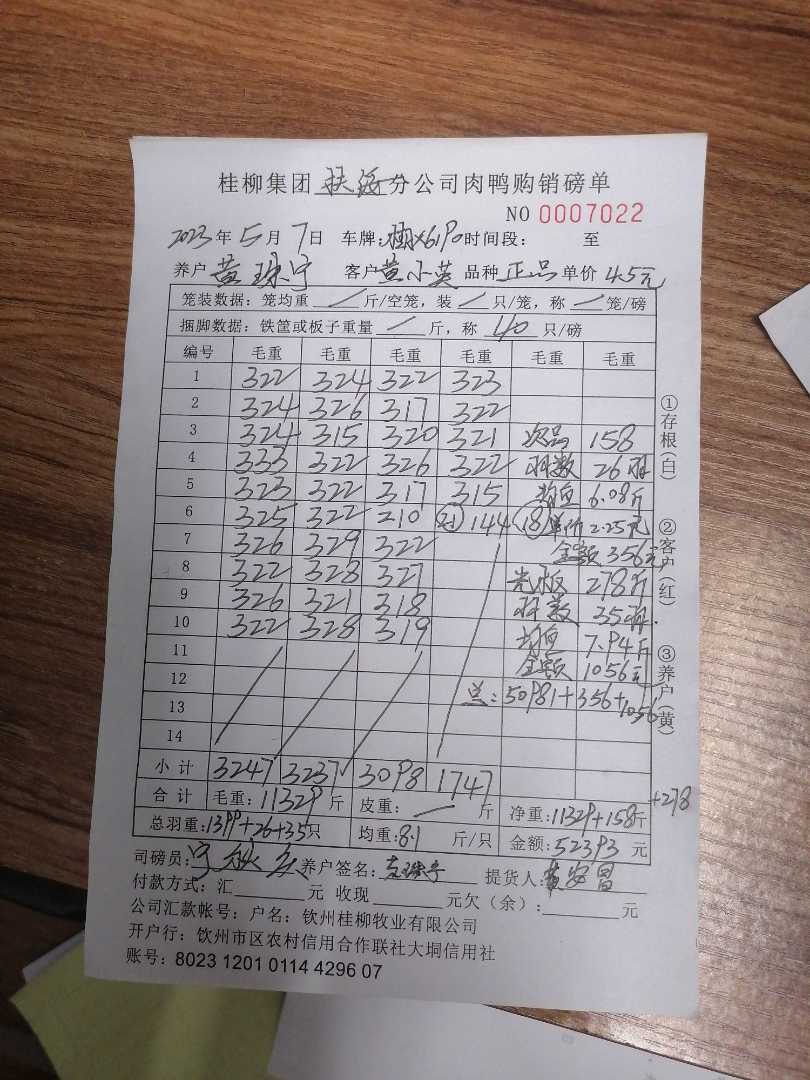 桂柳集团 扶绥 分公司肉鸭购销磅单
NO 0007022
2023 年 5 月 7 日 车牌: 时间段: 至
养户 黄珠宁 客户 黄小英 品种 正品 单价 4.5元
笼装数据: 笼均重 / 斤/空笼, 装 / 只/笼, 称 / 笼/磅
捆脚数据: 铁筐或板子重量 / 斤, 称 40 只/磅
编号 毛重 毛重 毛重 毛重 毛重 毛重
1 322 324 322 323
2 324 326 317 322
3 324 315 320 321 次品 158
4 333 322 326 322 羽数 26羽
5 323 322 317 315 均重 6.08斤
6 325 322 210 (21) 144 (18) 单价 2.25元
7 326 329 322 金额 356元
8 322 328 327 278斤
9 326 321 318 羽数 35羽
10 322 328 319 均重 7.94斤
11 金额 1056元
12 总: 50981+356+1056
13
14
小计 3247 3237 3098 1747
合计 毛重: 11329 斤 皮重: / 斤 净重: 11329+158斤 +278
总羽重: 1399+26+35只 均重: 8.1 斤/只 金额: 52393 元
司磅员: 养户签名: 黄珠宁 提货人:
付款方式: 汇 元 收现 元欠(余): 元
公司汇款帐号: 户名: 钦州桂柳牧业有限公司
开户行: 钦州市区农村信用合作联社大垌信用社
账号: 8023 1201 0114 4296 07
①存根(白)
②客户(红)
③养户(黄)